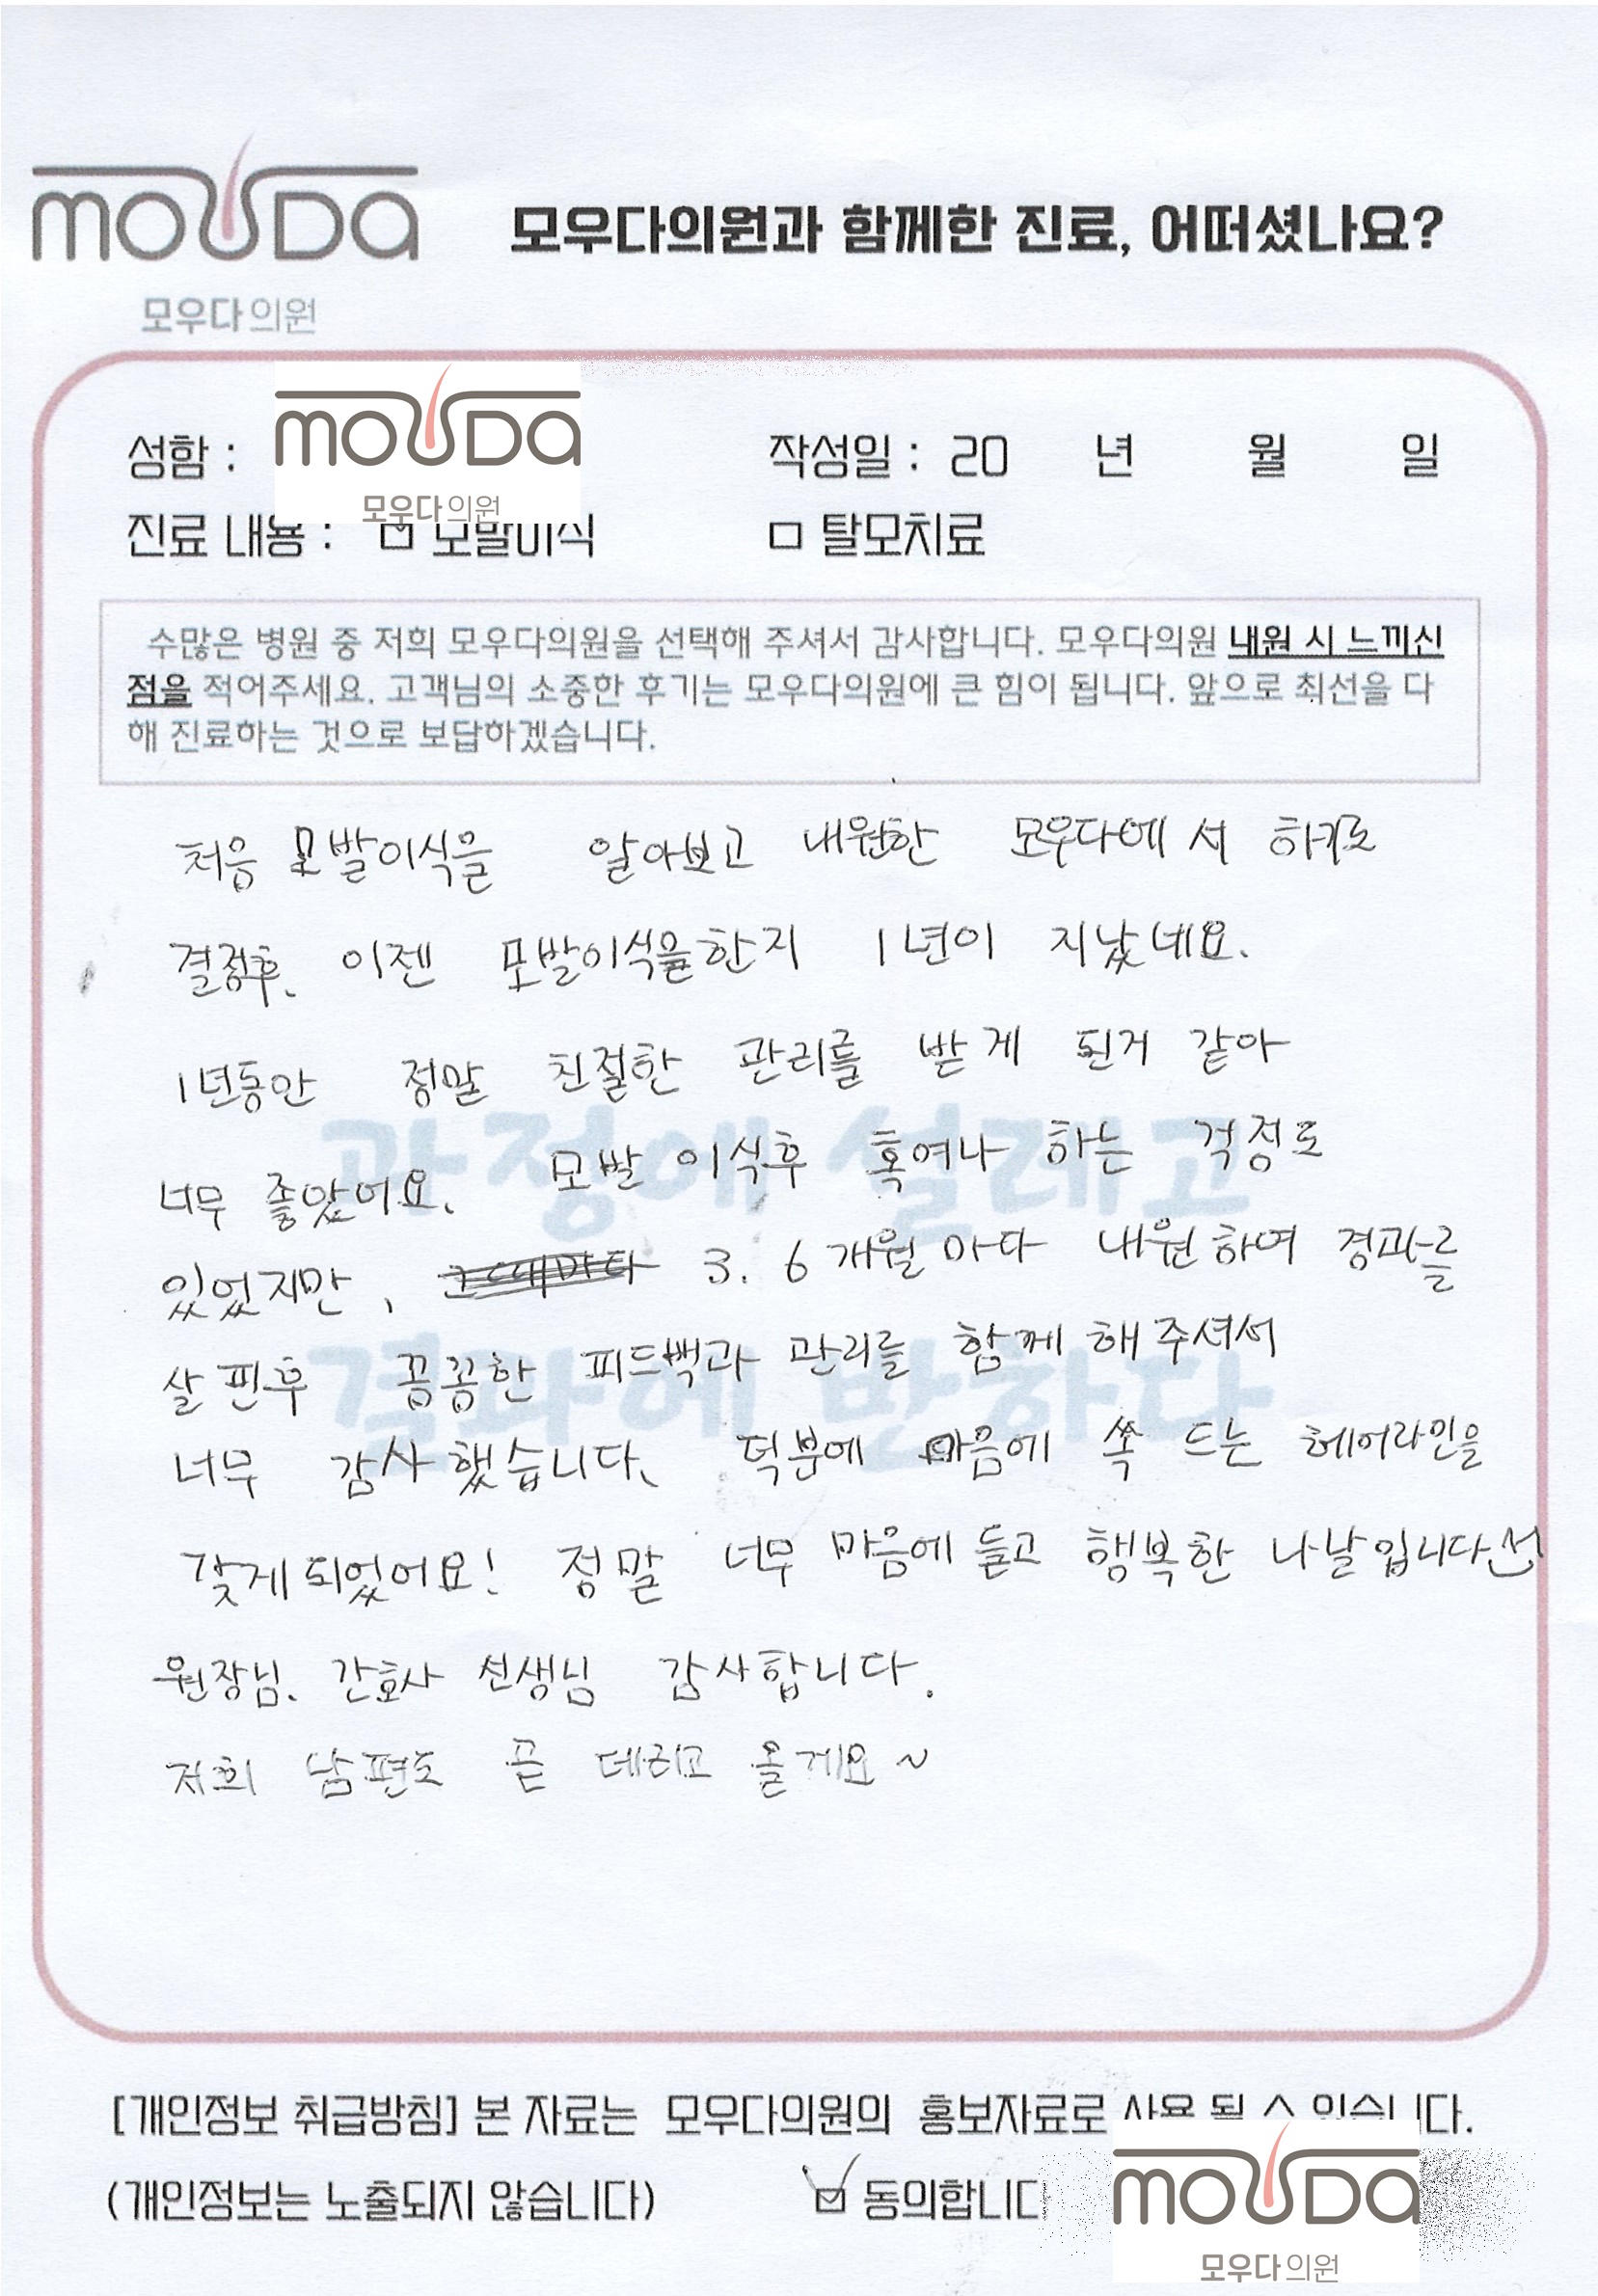 mouDa
모우다의원과 함께한 진료, 어떠셨나요?
모우다의원
mouDa
성함 :
작성일 : 20 년 월 일
모우다의원
진료 내용 : □ 모발이식 □ 탈모치료
수많은 병원 중 저희 모우다의원을 선택해 주셔서 감사합니다. 모우다의원 내원 시 느끼신
점을 적어주세요. 고객님의 소중한 후기는 모우다의원에 큰 힘이 됩니다. 앞으로 최선을 다
해 진료하는 것으로 보답하겠습니다.
처음 모발이식을 알아보고 내원한 모우다에서 하기로
결정후, 이젠 모발이식을한지 1년이 지났네요.
1년동안 정말 친절한 관리를 받게 된거 같아
너무 좋았어요. 모발 이식후 혹여나 하는 걱정도
있었지만, 3. 6개월마다 내원하여 경과를
살핀후 꼼꼼한 피드백과 관리를 함께 해주셔서
너무 감사했습니다. 덕분에 마음에 쏙 드는 헤어라인을
갖게되었어요! 정말 너무 마음에 들고 행복한 나날입니다
원장님. 간호사 선생님 감사합니다.
저희 남편도 곧 데리고 올게요~
과정에 설레고
결과에 반하다
[개인정보 취급방침] 본 자료는 모우다의원의 홍보자료로 사용 될 수 있습니다.
(개인정보는 노출되지 않습니다) ☑ 동의합니다
mouDa
모우다의원